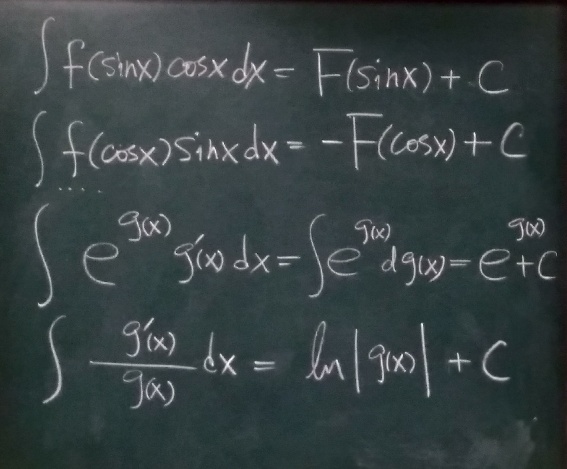 ∫ f(sinx) cosx dx = F(sinx) + C
∫ f(cosx) sinx dx = -F(cosx) + C
....
∫ e^{g(x)} g'(x) dx = ∫ e^{g(x)} dg(x) = e^{g(x)} + C
∫ \frac{g'(x)}{g(x)} dx = ln|g(x)| + C